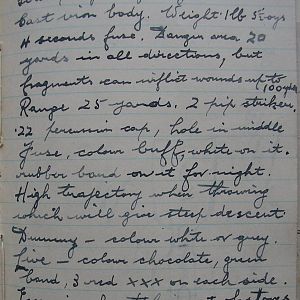 Cast iron body. Weight 1 lb 5½ ozs
4 seconds fuse. Danger area 20
yards in all directions, but
fragments can inflict wounds up to
100 yds
Range 25 yards. 2 pip striker.
.22 percussion cap, hole in middle
Fuse, colour buff, white on it.
rubber band on it for night.
High trajectory when throwing
which will give steep descent
Dummy – colour white or grey.
Live – colour chocolate, green
band, 3 red xxx on each side.